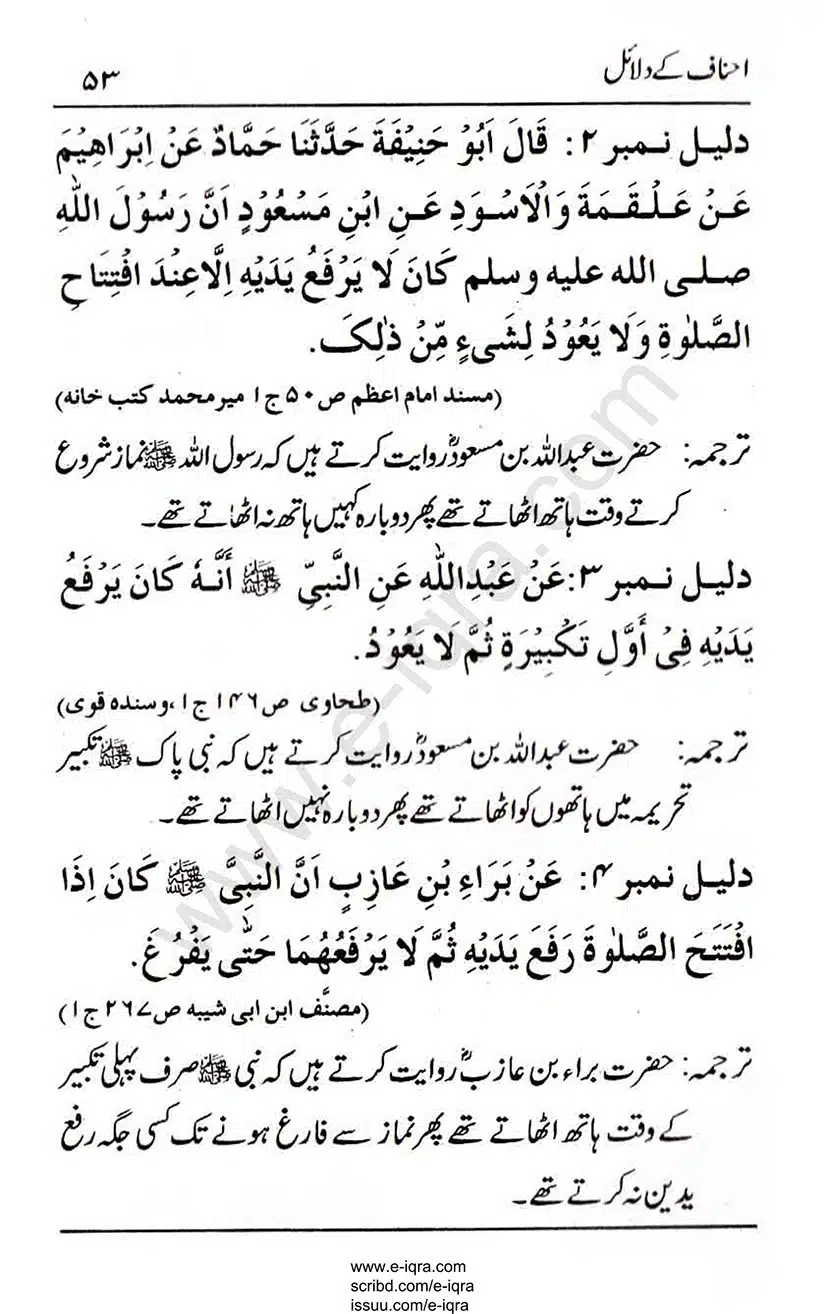 احناف کے دلائل
۵۳
دلیل نمبر ۲: قَالَ اَبُوْ حَنِيْفَةَ حَدَّثَنَا حَمَّادٌ عَنْ اِبْرَاهِيْمَ
عَنْ عَلْقَمَةَ وَالْاَسْوَدِ عَنِ ابْنِ مَسْعُوْدٍ اَنَّ رَسُوْلَ اللّٰهِ
صلى الله عليه وسلم كَانَ لَا يَرْفَعُ يَدَيْهِ اِلَّا عِنْدَ افْتِتَاحِ
الصَّلٰوةِ وَلَا يَعُوْدُ لِشَىءٍ مِّنْ ذٰلِكَ.
(مسند امام اعظم ص ۵۰ ج ۱ میر محمد کتب خانہ)
ترجمہ: حضرت عبداللہ بن مسعودؓ روایت کرتے ہیں کہ رسول اللہ ﷺ نماز شروع
کرتے وقت ہاتھ اٹھاتے تھے پھر دوبارہ کہیں ہاتھ نہ اٹھاتے تھے۔
دلیل نمبر ۳: عَنْ عَبْدِاللّٰهِ عَنِ النَّبِىِّ ﷺ أَنَّهٗ كَانَ يَرْفَعُ
يَدَيْهِ فِىْ أَوَّلِ تَكْبِيْرَةٍ ثُمَّ لَا يَعُوْدُ.
(طحاوی ص ۱۴۶ ج ۱، وسندہ قوی)
ترجمہ: حضرت عبداللہ بن مسعودؓ روایت کرتے ہیں کہ نبی پاک ﷺ تکبیر
تحریمہ میں ہاتھوں کو اٹھاتے تھے پھر دوبارہ نہیں اٹھاتے تھے۔
دلیل نمبر ۴: عَنْ بَرَاءِ بْنِ عَازِبٍ اَنَّ النَّبِىَّ ﷺ كَانَ اِذَا
افْتَتَحَ الصَّلٰوةَ رَفَعَ يَدَيْهِ ثُمَّ لَا يَرْفَعُهُمَا حَتّٰى يَفْرُغَ.
(مصنَّف ابن ابی شیبہ ص ۲۶۷ ج ۱)
ترجمہ: حضرت براء بن عازبؓ روایت کرتے ہیں کہ نبی ﷺ صرف پہلی تکبیر
کے وقت ہاتھ اٹھاتے تھے پھر نماز سے فارغ ہونے تک کسی جگہ رفع
یدین نہ کرتے تھے۔
www.e-iqra.com
www.e-iqra.com
scribd.com/e-iqra
issuu.com/e-iqra